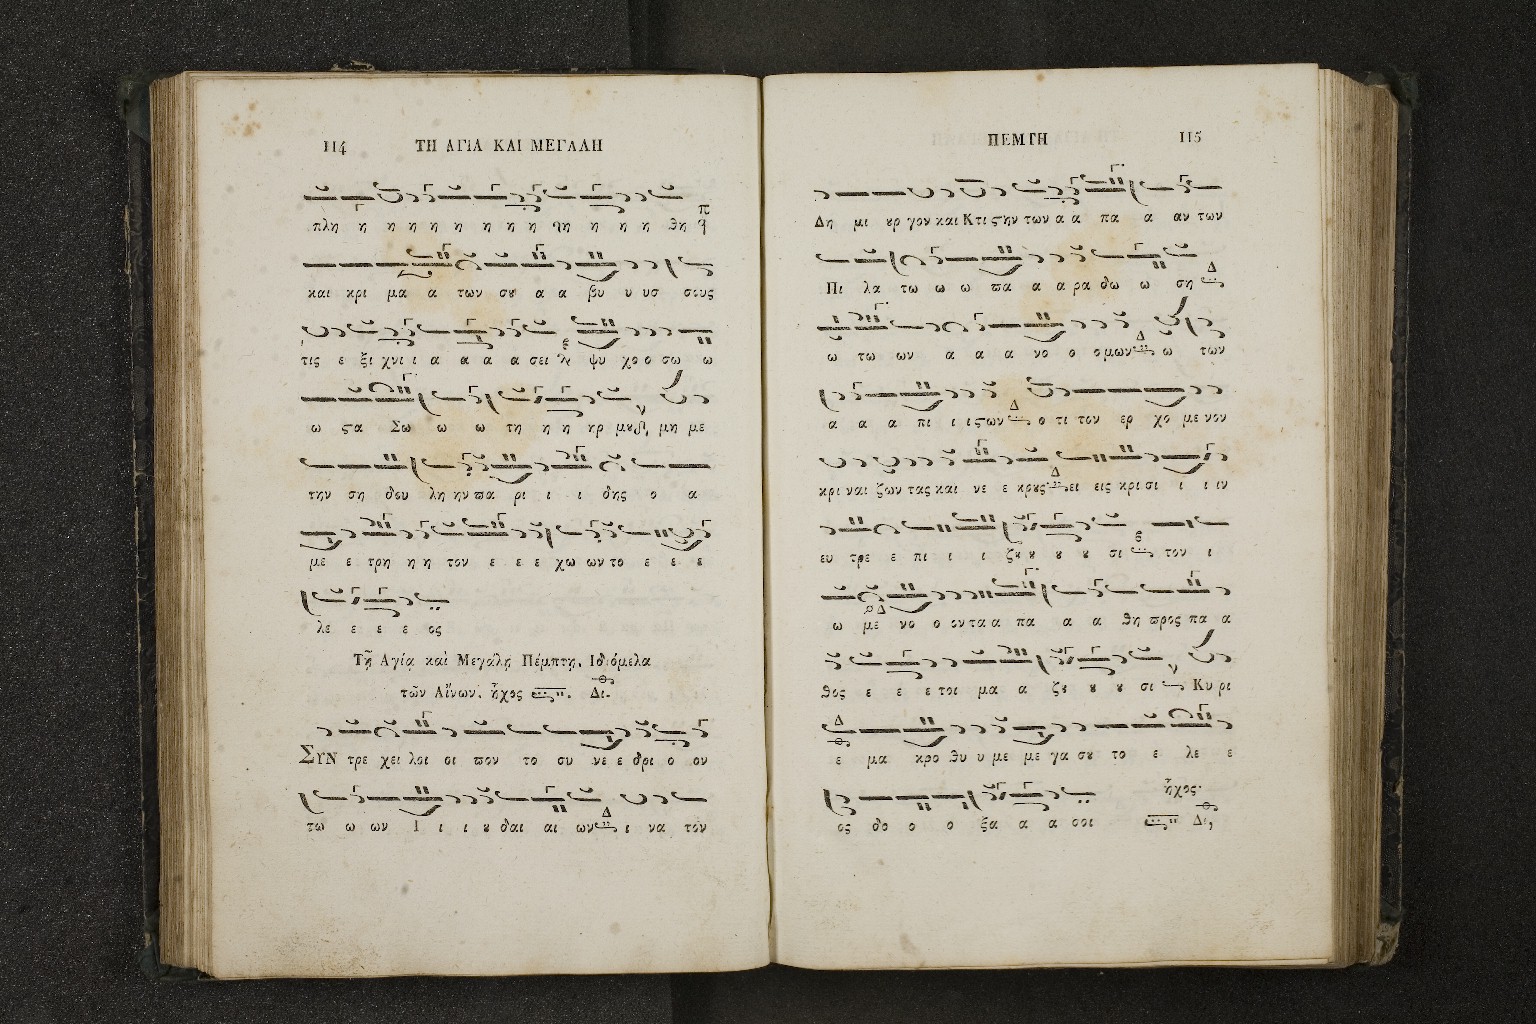 114 ΤΗ ΑΓΙΑ ΚΑΙ ΜΕΓΑΛΗ
πλη η η η η η η η η λη η η η θη
και κρι μα α των σου α α βυ υ υσ σους
τις ε ξι χνι ι α α α α σει ψυ χο ο σω ω
ω στα Σω ω ω τη η η ηρ μου μη με
την ση δου λη ην πα ρι ι ι δης ο α
με ε τρη η η τον ε ε ε χω ων το ε ε ε
λε ε ε ε ος
Τῇ Αγίᾳ καὶ Μεγάλῃ Πέμπτῃ. Ιδιόμελα
τῶν Αἴνων. ἦχος Δι.
ΣΥΝ τρε χει λοι οι πον το συ νε ε δρι ο ον
τω ω ων Ι ι ι ου δαι αι ων ι να τον
ΠΕΜΤΗ 115
Δη μι ουρ γον και Κτι στην των α α πα α αν των
Πι λα τω ω ω πα α α ρα δω ω ση
ὢ τω ων α α α νο ο ο μων ὢ των
α α α πι ι ι στων ο τι τον ερ χο με νον
κρι ναι ζων τας και νε ε κρους ει εις κρι σι ι ι ιν
ευ τρε ε πι ι ι ζου ου ου ου σι τον ι
ω με νο ο οντα α πα α α θη προς πα α
θος ε ε ε τοι μα α ζου ου ου σι Κυ ρι
ε μα κρο θυ υ με με γα σου το ε λε ε
ος δο ο ο ξα α α α σοι ἦχος Δι,